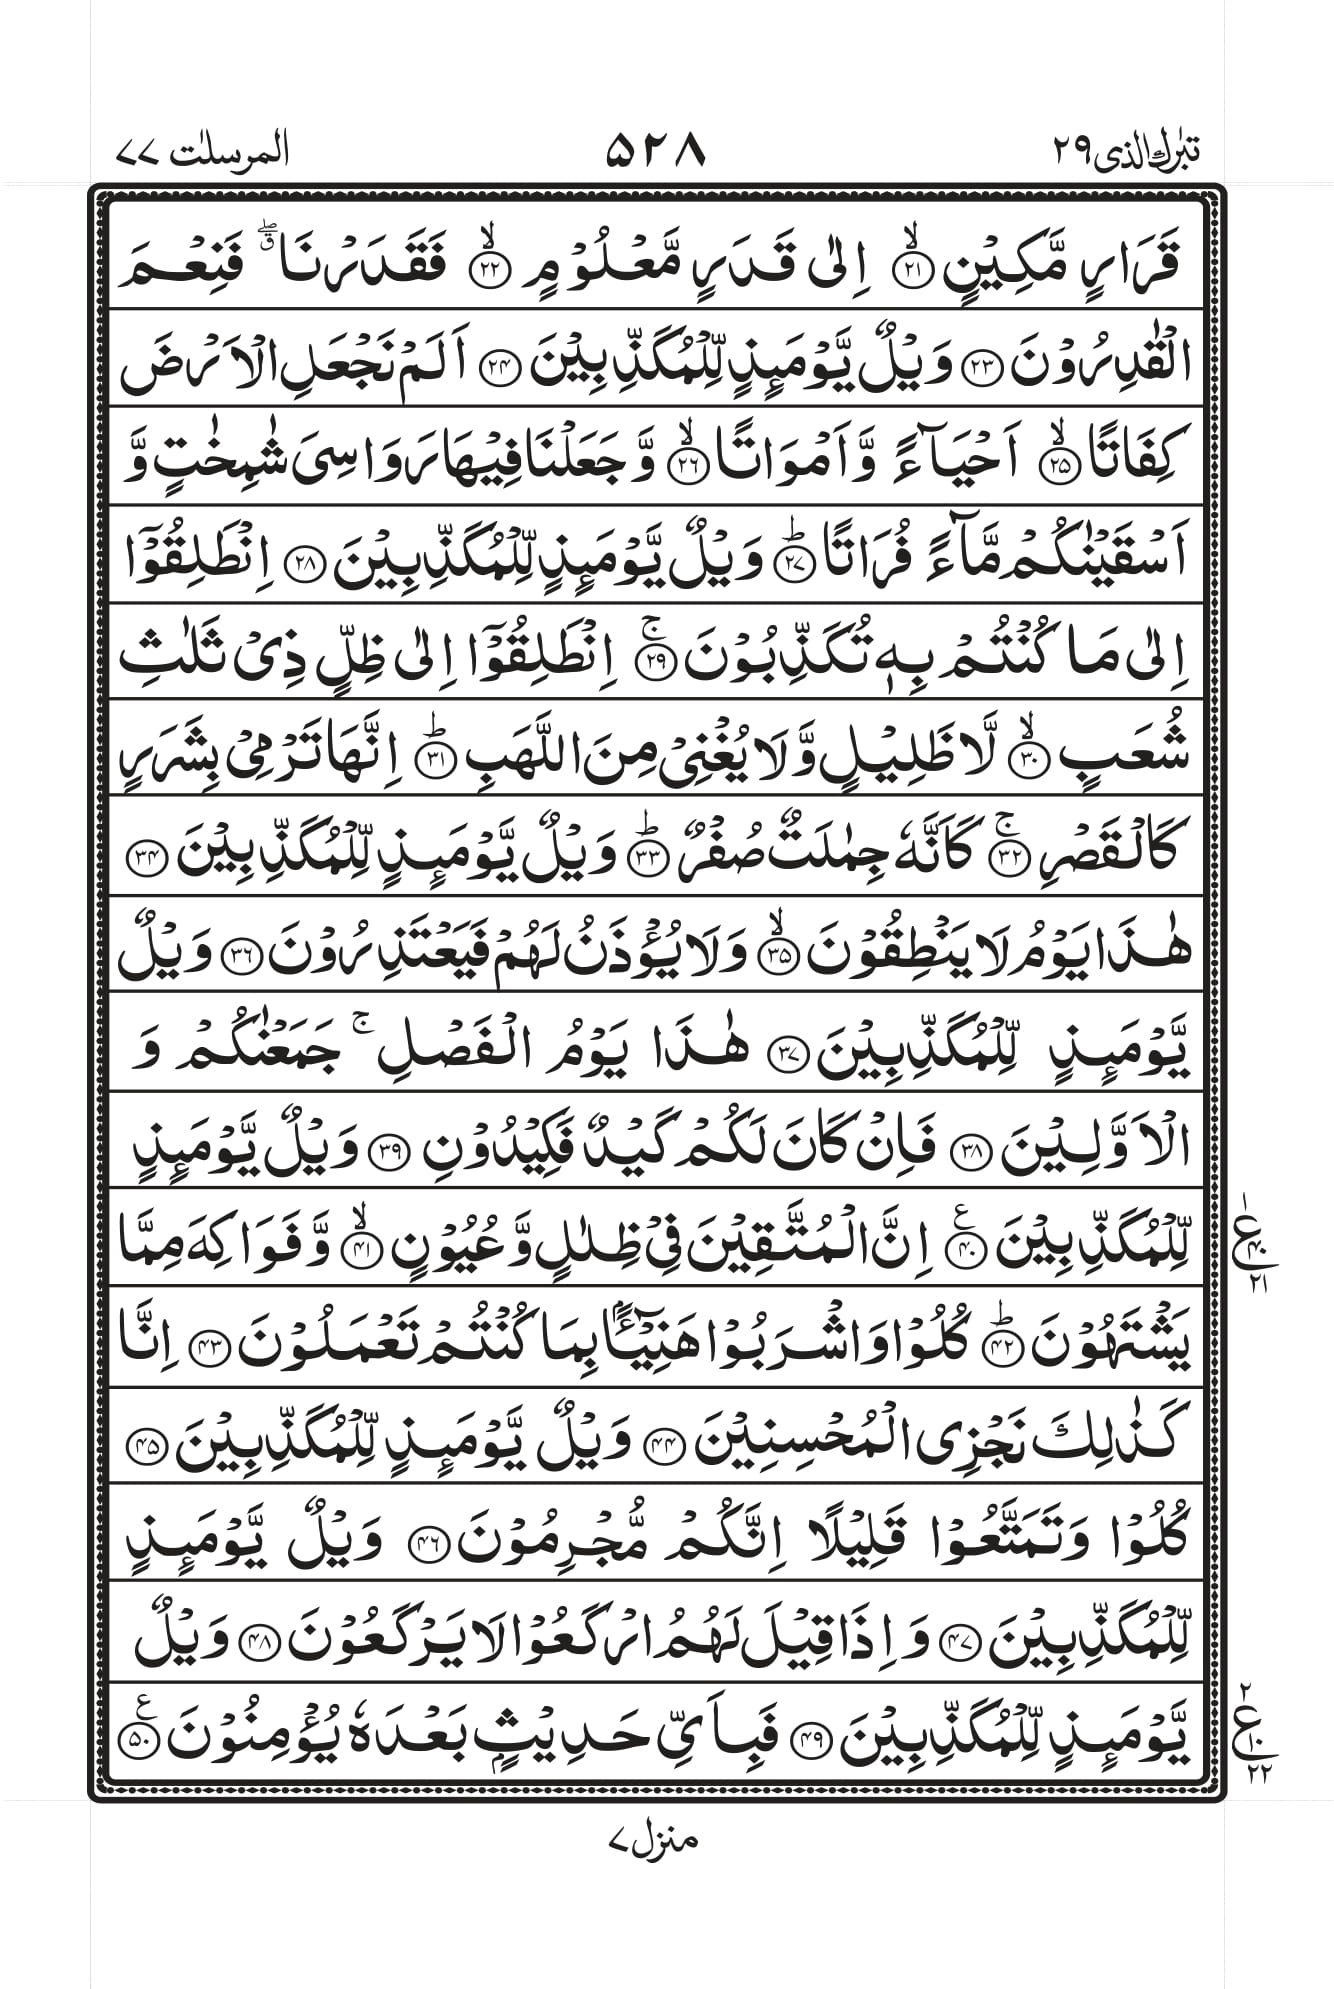 تبٰرك الذی ۲۹ ۵۲۸ المرسلٰت ۷۷
قَرَارٍ مَّكِيْنٍ ۙ‏﴿۲۱﴾ اِلٰى قَدَرٍ مَّعْلُوْمٍ ۙ‏﴿۲۲﴾ فَقَدَرْنَا ۖۗ فَنِعْمَ
الْقٰدِرُوْنَ ﴿۲۳﴾ وَيْلٌ يَّوْمَئِذٍ لِّلْمُكَذِّبِيْنَ ﴿۲۴﴾ اَلَمْ نَجْعَلِ الْاَرْضَ
كِفَاتًا ۙ‏﴿۲۵﴾ اَحْيَآءً وَّاَمْوَاتًا ۙ‏﴿۲۶﴾ وَّجَعَلْنَا فِيْهَا رَوَاسِىَ شٰمِخٰتٍ وَّ
اَسْقَيْنٰكُمْ مَّآءً فُرَاتًا ؕ‏﴿۲۷﴾ وَيْلٌ يَّوْمَئِذٍ لِّلْمُكَذِّبِيْنَ ﴿۲۸﴾ اِنْطَلِقُوْۤا
اِلٰى مَا كُنْتُمْ بِهٖ تُكَذِّبُوْنَ ۚ‏﴿۲۹﴾ اِنْطَلِقُوْۤا اِلٰى ظِلٍّ ذِىْ ثَلٰثِ
شُعَبٍ ۙ‏﴿۳۰﴾ لَّا ظَلِيْلٍ وَّلَا يُغْنِىْ مِنَ اللَّهَبِ ؕ‏﴿۳۱﴾ اِنَّهَا تَرْمِىْ بِشَرَرٍ
كَالْقَصْرِ ۚ‏﴿۳۲﴾ كَاَنَّهٗ جِمٰلَتٌ صُفْرٌ ؕ‏﴿۳۳﴾ وَيْلٌ يَّوْمَئِذٍ لِّلْمُكَذِّبِيْنَ ﴿۳۴﴾
هٰذَا يَوْمُ لَا يَنْطِقُوْنَ ۙ‏﴿۳۵﴾ وَلَا يُؤْذَنُ لَهُمْ فَيَعْتَذِرُوْنَ ﴿۳۶﴾ وَيْلٌ
يَّوْمَئِذٍ لِّلْمُكَذِّبِيْنَ ﴿۳۷﴾ هٰذَا يَوْمُ الْفَصْلِ ۚ جَمَعْنٰكُمْ وَ
الْاَوَّلِيْنَ ﴿۳۸﴾ فَاِنْ كَانَ لَكُمْ كَيْدٌ فَكِيْدُوْنِ ﴿۳۹﴾ وَيْلٌ يَّوْمَئِذٍ
لِّلْمُكَذِّبِيْنَ ﴿۴۰﴾ ع اِنَّ الْمُتَّقِيْنَ فِىْ ظِلٰلٍ وَّعُيُوْنٍ ۙ‏﴿۴۱﴾ وَّفَوَاكِهَ مِمَّا
۱ ع ۴۰ ۲۱
يَشْتَهُوْنَ ؕ‏﴿۴۲﴾ كُلُوْا وَاشْرَبُوْا هَنِيْٓـئًا ۢ بِمَا كُنْتُمْ تَعْمَلُوْنَ ﴿۴۳﴾ اِنَّا
كَذٰلِكَ نَجْزِى الْمُحْسِنِيْنَ ﴿۴۴﴾ وَيْلٌ يَّوْمَئِذٍ لِّلْمُكَذِّبِيْنَ ﴿۴۵﴾
كُلُوْا وَتَمَتَّعُوْا قَلِيْلًا اِنَّكُمْ مُّجْرِمُوْنَ ﴿۴۶﴾ وَيْلٌ يَّوْمَئِذٍ
لِّلْمُكَذِّبِيْنَ ﴿۴۷﴾ وَاِذَا قِيْلَ لَهُمُ ارْكَعُوْا لَا يَرْكَعُوْنَ ﴿۴۸﴾ وَيْلٌ
يَّوْمَئِذٍ لِّلْمُكَذِّبِيْنَ ﴿۴۹﴾ فَبِاَىِّ حَدِيْثٍۭ بَعْدَهٗ يُؤْمِنُوْنَ ﴿۵۰﴾ ع
۲ ع ۱۰ ۲۲
منزل ۷